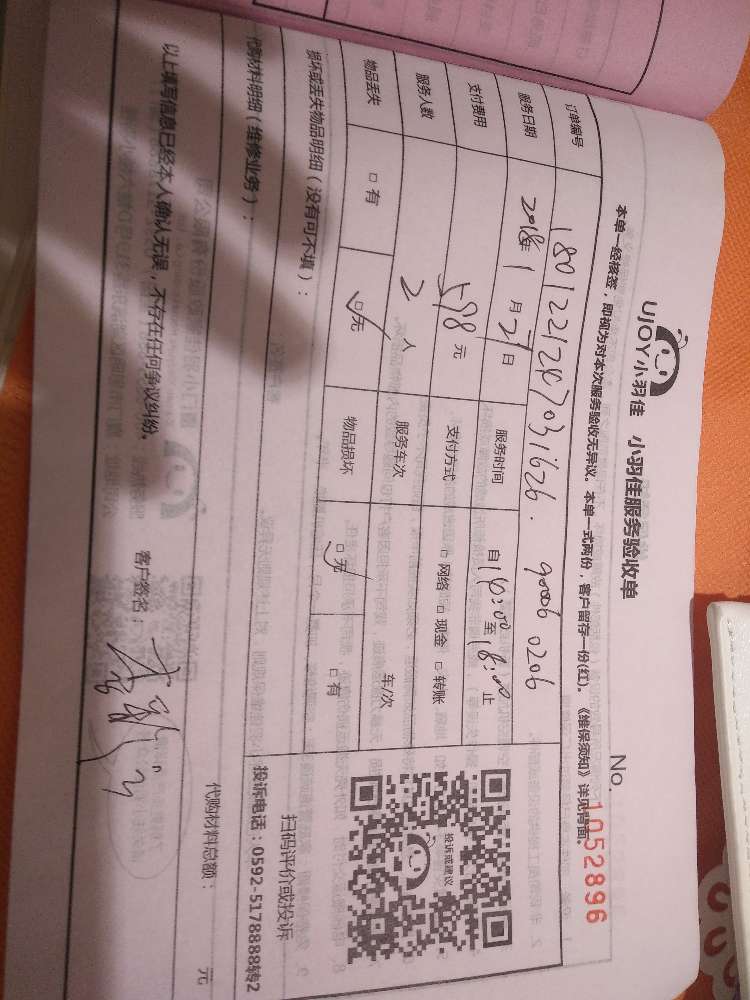 UJOY小羽佳 小羽佳服务验收单
No. 1052896
本单一经核签，即视为对本次服务验收无异议。本单一式两份，客户留存一份(红)。《维保须知》详见背面。
订单编号
服务日期 2018年1月21日 服务时间 自14:00至18:00止
支付费用 598元 支付方式 □网络 □现金 □转账
服务人数 2人 服务车次 车/次
物品丢失 □有 □无 物品损坏 □无 □有
投诉或建议
扫码评价或投诉
投诉电话：0592-5178888转2
损坏或丢失物品明细（没有可不填）：
代购材料明细（维修业务）：
代购材料总额： 元
以上填写信息已经本人确认无误，不存在任何争议纠纷。 客户签名：